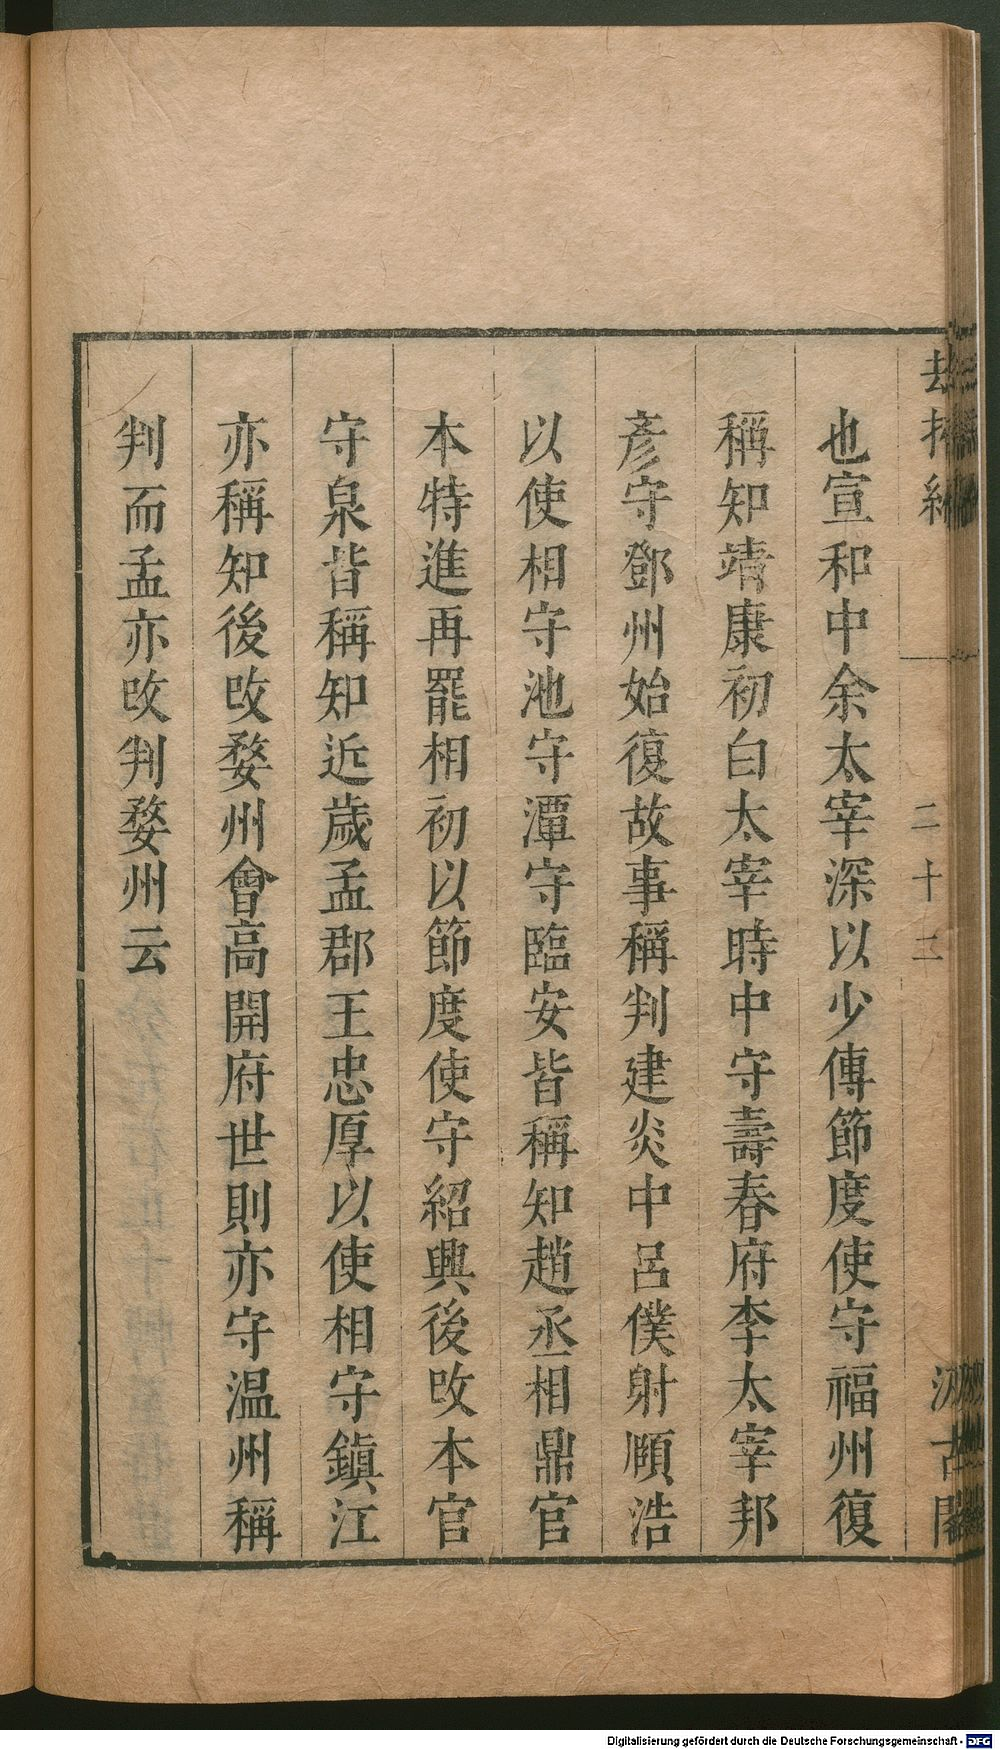 也宣和中余太宰深以少傳節度使守福州復
稱知靖康初白太宰時中守壽春府李太宰邦
彥守鄧州始復故事稱判建炎中呂僕射頤浩
以使相守池守潭守臨安皆稱知趙丞相鼎官
本特進再罷相初以節度使守紹興後改本官
守泉皆稱知近歲孟郡王忠厚以使相守鎮江
亦稱知後改婺州會高開府世則亦守温州稱
判而孟亦改判婺州云
二十三
汲古閣
Digitalisierung gefördert durch die Deutsche Forschungsgemeinschaft - DFG